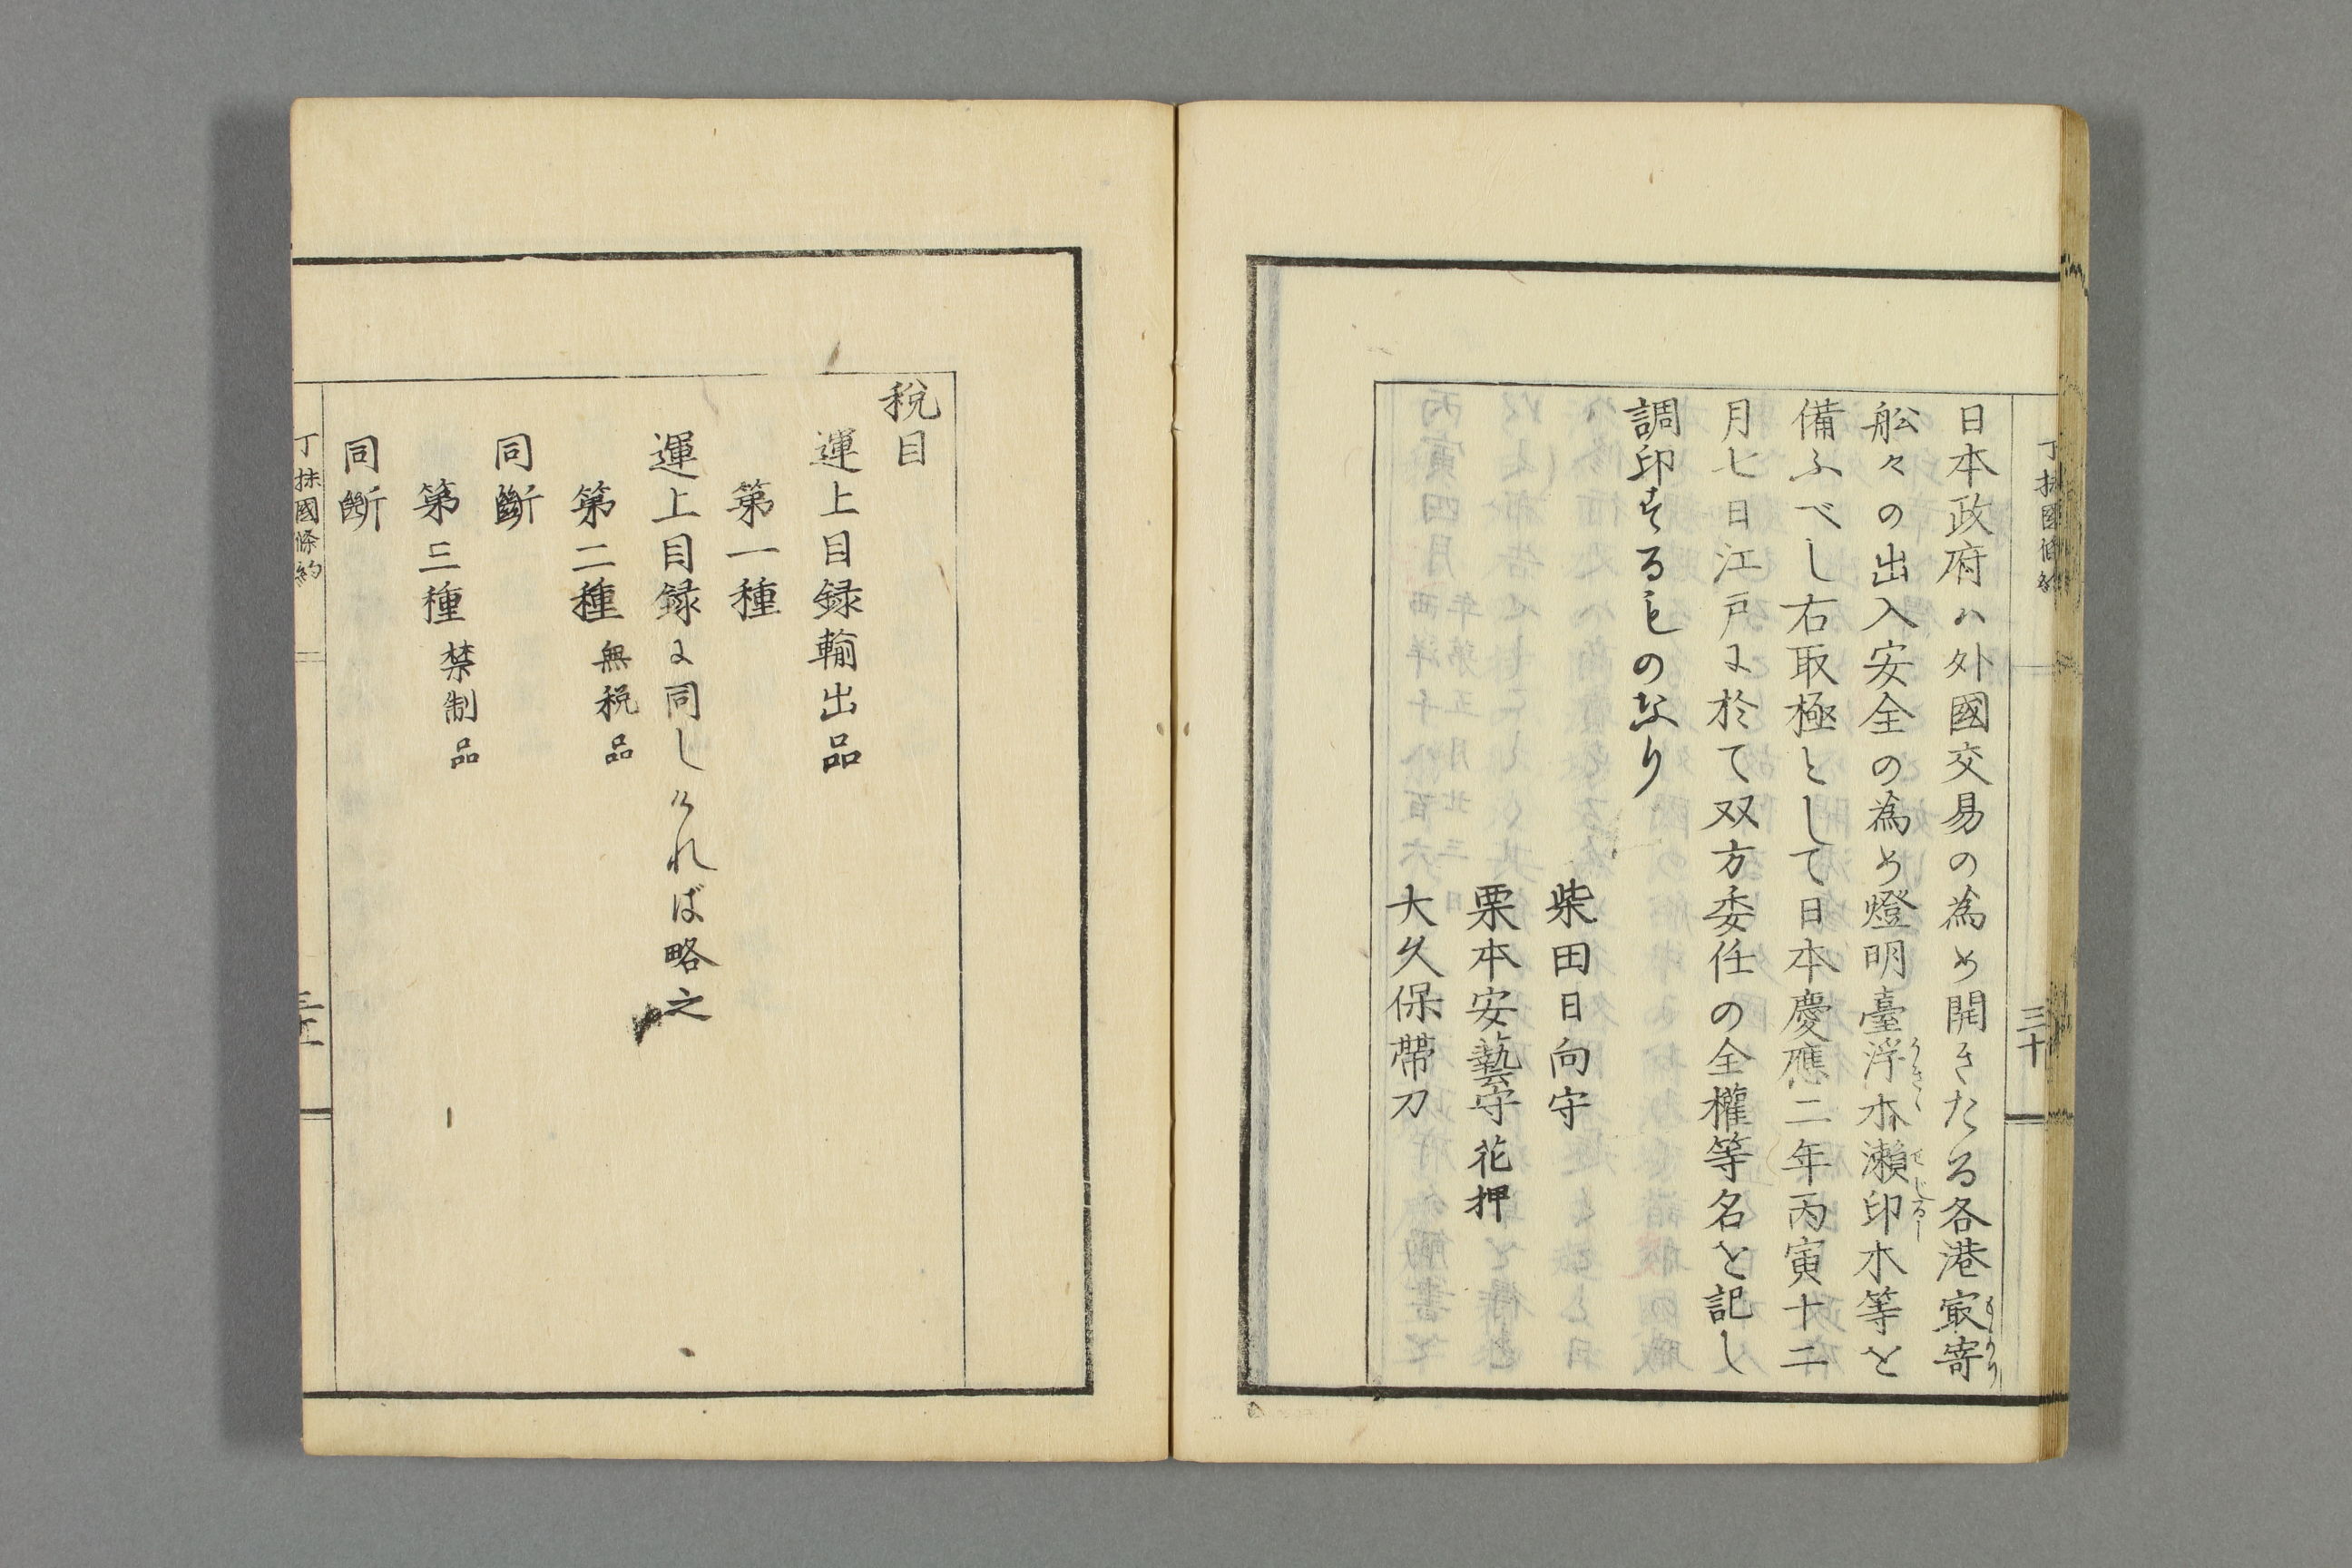 丁抹國條約
三十
日本政府ハ外國交易の為め開きたる各港㝡寄
もより
舩々の出入安全の為め燈明臺浮木瀬印木等を
うきゝ
せじるし
備ふべし右取極として日本慶應二年丙寅十二
月七日江戸に於て双方委任の全權等名を記し
調印するものなり
柴田日向守
栗本安藝守 花押
大久保帶刀
税目
運上目録輸出品
第一種
運上目録に同しければ略之
第二種 無税品
同斷
第三種 禁制品
同斷
丁抹國條約